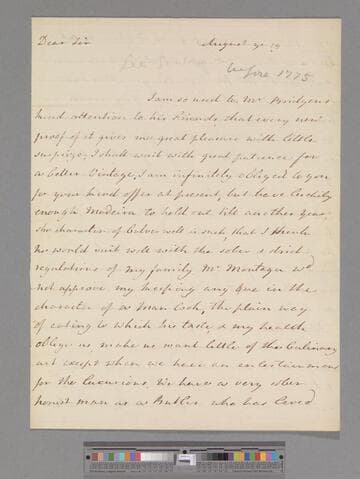 Dear Sir August ye 19
before 1775
I am so used to Mr Bridgens
kind attention to his Friends, that every new
proof of it gives me great pleasure with little
surprize; I shall wait with great patience for
a better Vintage, I am infinitely obliged to you
for your kind offer at present, but have luckily
enough Madeira to hold out till another year,
The character of Culver well is such, that I think
he would suit well with the sober & strict
regulations of my family Mr Montagu wd
not approve my keeping any One in the
character of a Man Cook, The plain way
of eating to which his taste & my health
oblige us, make us want little of the Culinary
art except when we have an entertainment
for the Luxurious, We have a very sober
honest man as a Butler who has lived